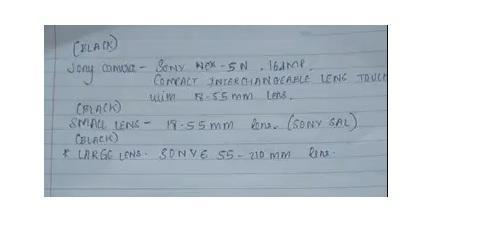 (BLACK)
Sony camera - SONY NEX-5N. 16.1MP.
COMPACT INTERCHANGEABLE LENS TOUCH
with 18-55mm lens.
(BLACK)
SMALL LENS - 18-55mm lens. (SONY SAL)
(BLACK)
* LARGE LENS. SONY E 55-210 mm lens.